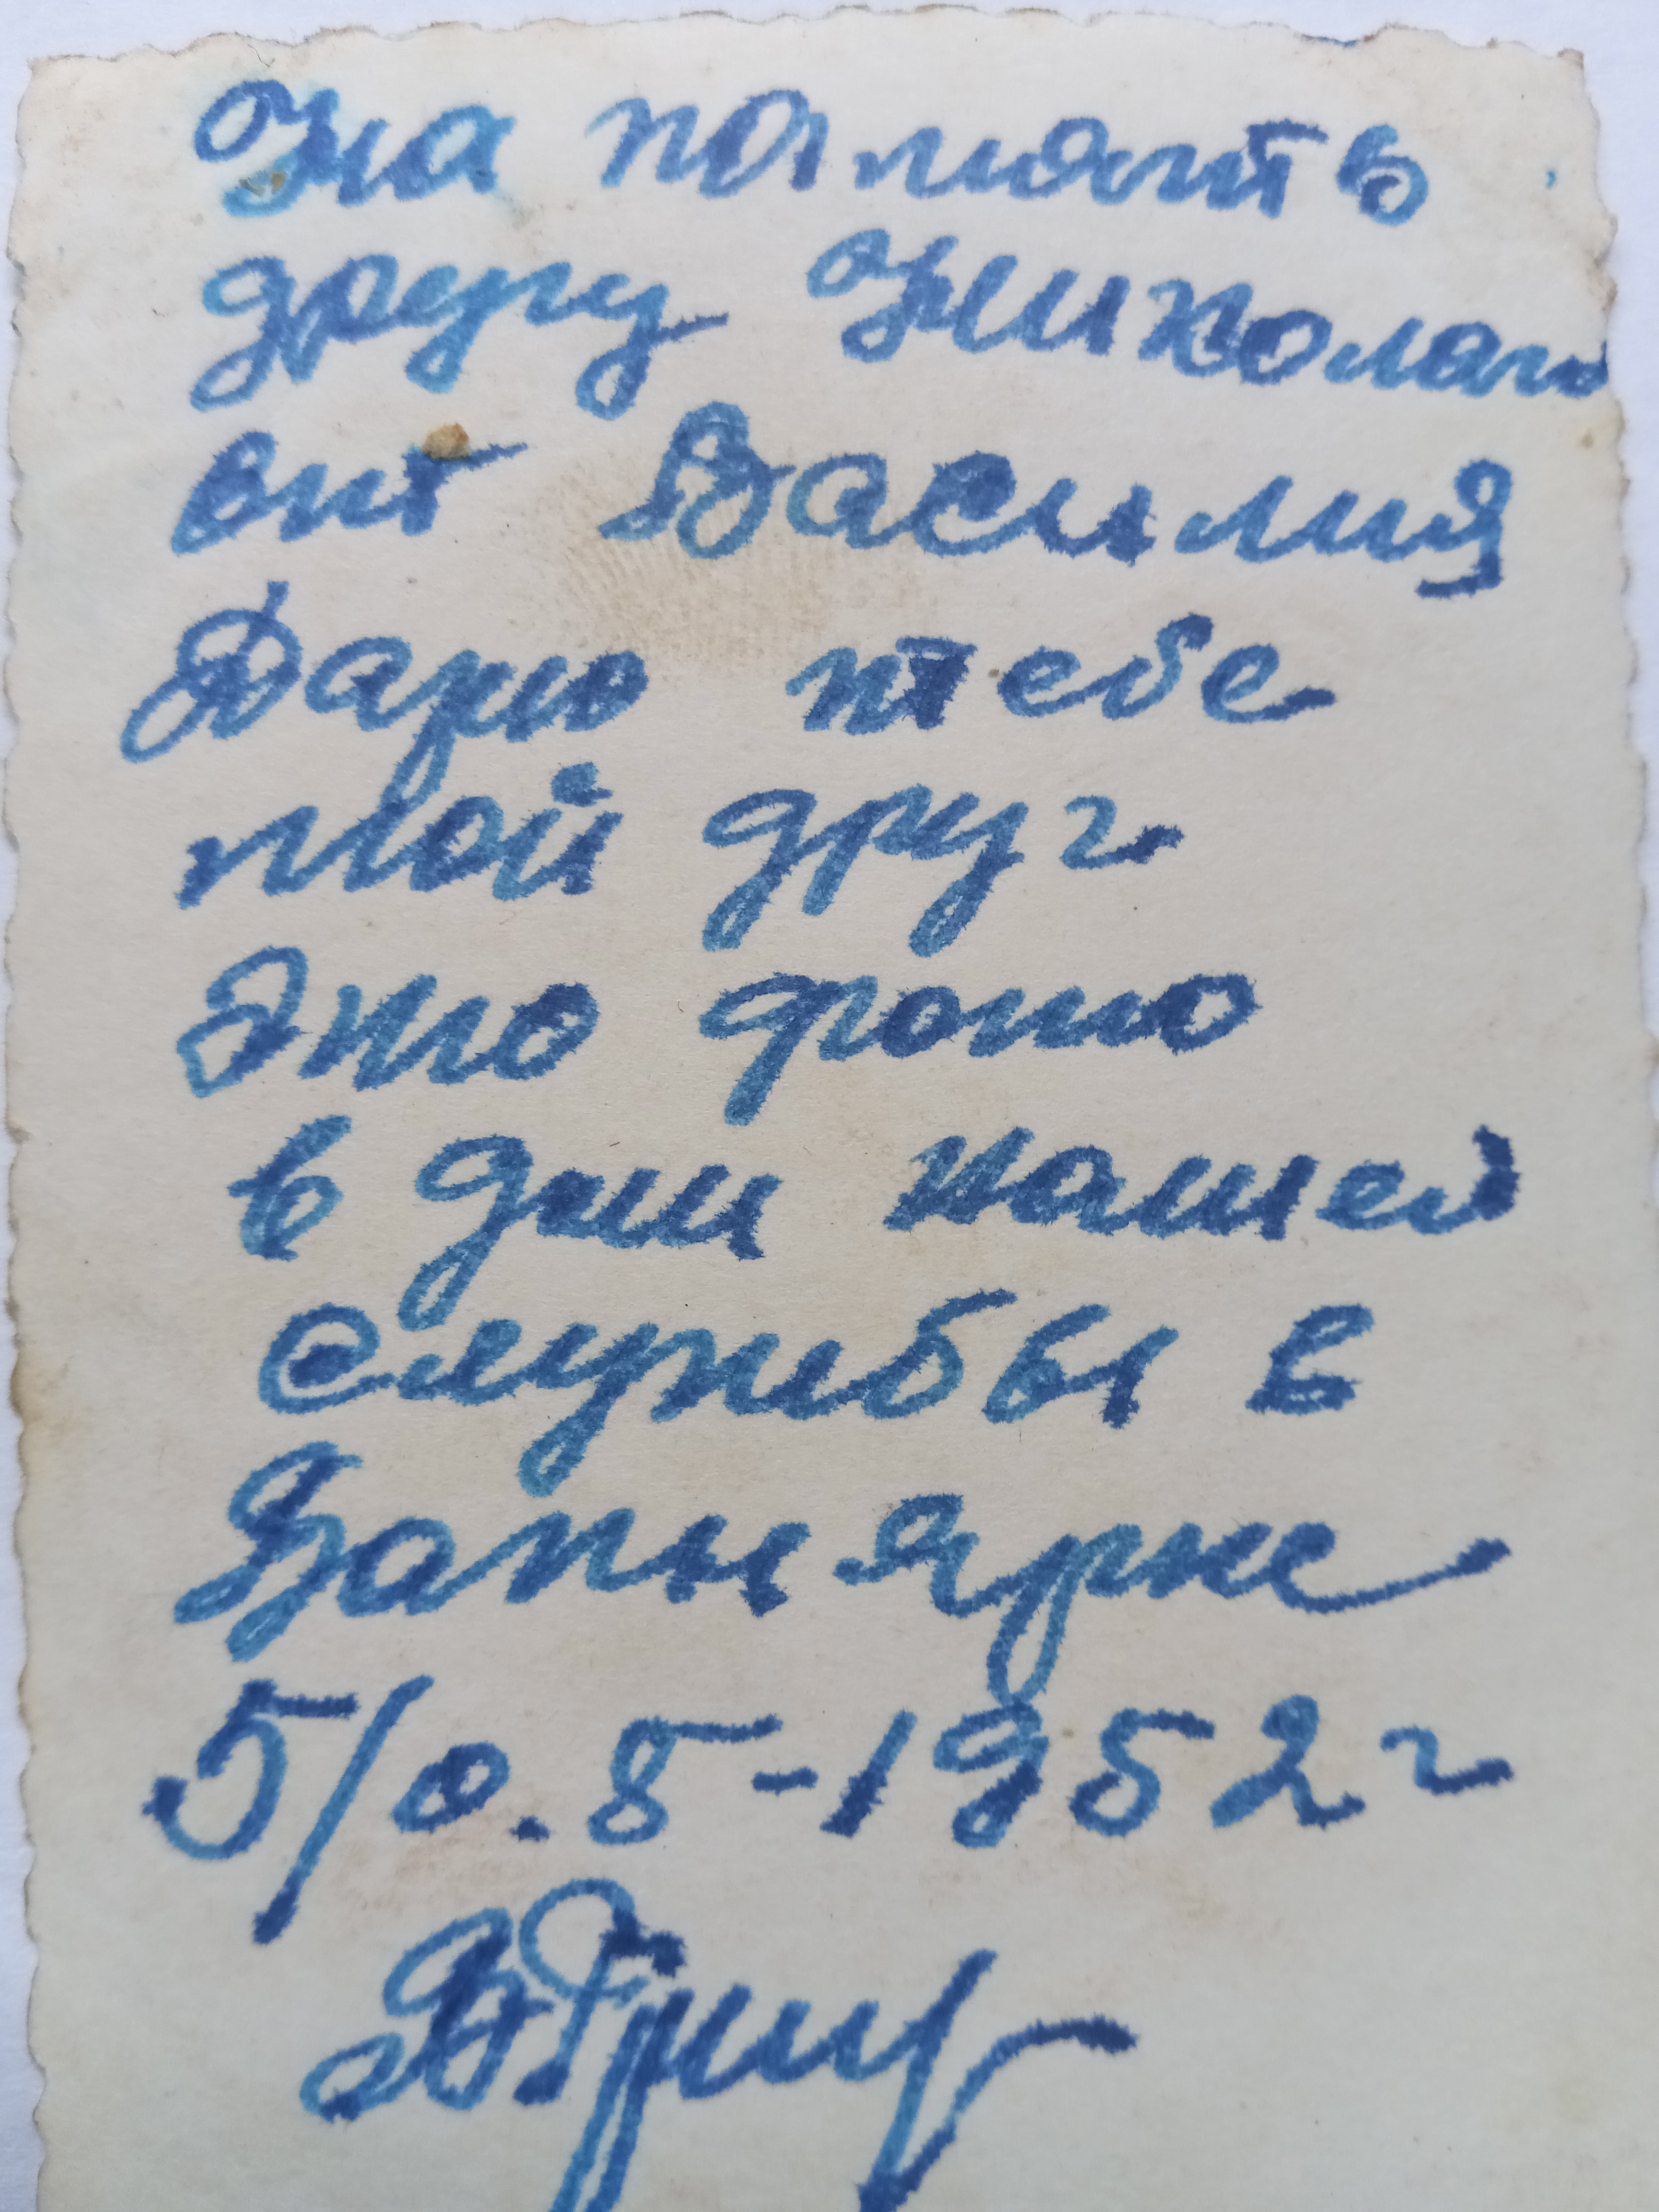 На память
другу Николаю
вит Василия
Дарю тебе
мой друг
Это фото
в дни нашей
службы в
Вапнярке
5/0.8-1952г